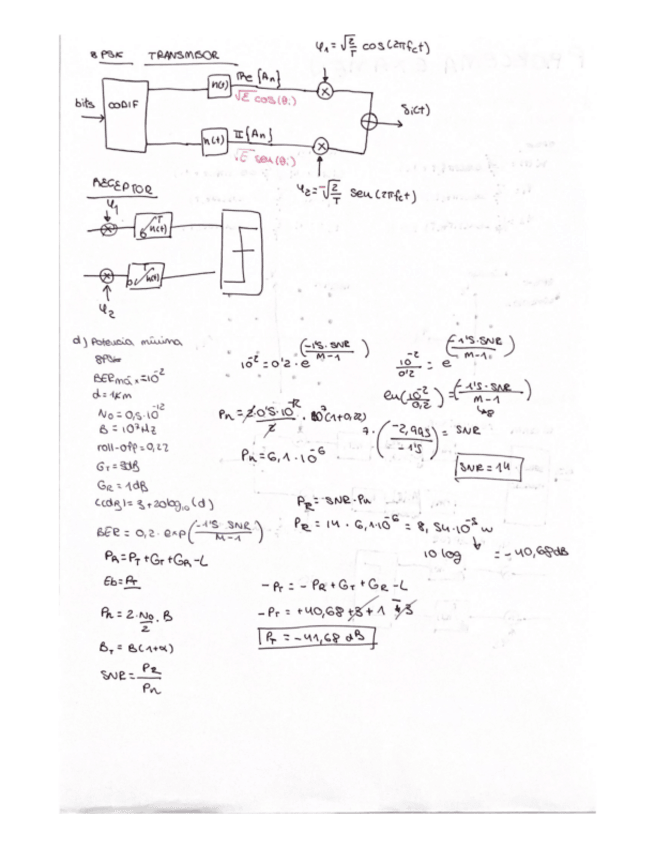 8PSK TRANSMISOR
φ₁=√(2/T) cos(2πfct)
bits
CODIF
n(t)
Re{An}
√E cos(θi)
×
Si(t)
n(t)
II{An}
√E sen(θi)
×
φ₂=-√(2/T) sen(2πfct)
RECEPTOR
φ₁
n(t)
n(t)
φ₂
d) Potencia mínima
8PSK
BERmáx=10^-2
d=1Km
No=0,5·10^-12
B=10^7Hz
roll-off=0,22
GT=3dB
GR=1dB
L(dB)=3+20log10(d)
BER=0,2·exp(-1'5 SNR/M-1)
PR=PT+GT+GR-L
Eb=PT
Pn=2·No/2·B
BT=B(1+α)
SNR=PR/Pn
10^-2=0'2·e^(-1'5·SNR/M-1)
10^-2/0'2=e^(-1'5·SNR/M-1)
ln(10^-2/0,2)=(-1'5·SNR/M-1)
8
7·(-2,995/-1'5)=SNR
SNR=14
Pn=2·0'5·10^-12/2·10^7(1+0,22)
Pn=6,1·10^-6
PR=SNR·Pn
PR=14·6,1·10^-6=8,54·10^-5 w
10 log =-40,68dB
-PT=-PR+GT+GR-L
-PT=+40,68+3+1-3
PT=-41,68 dB